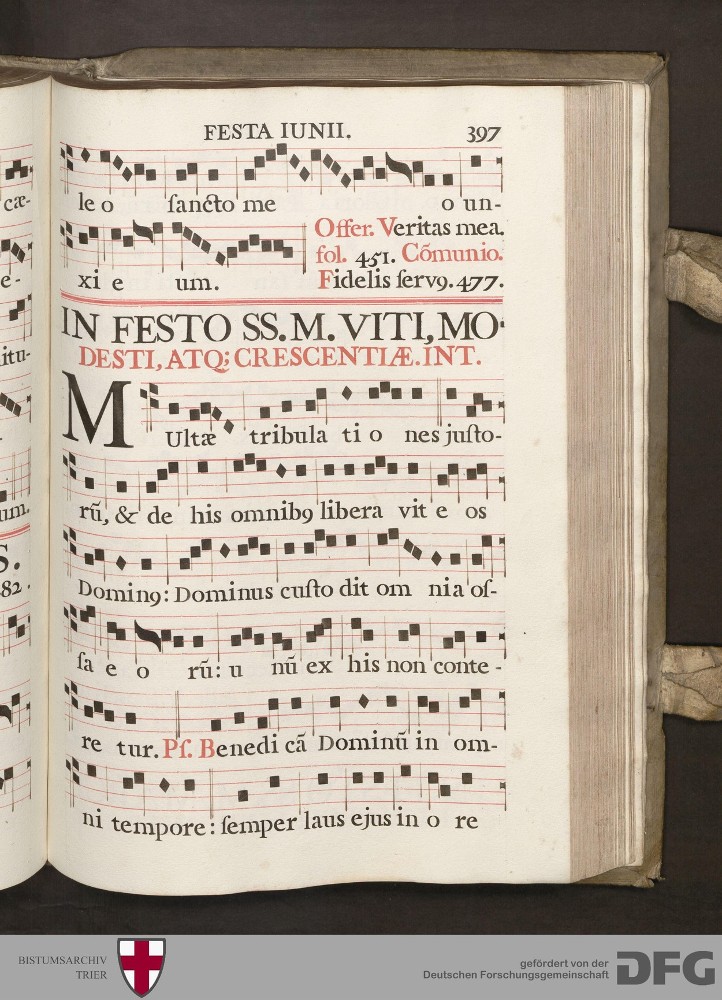 FESTA IUNII. 397
le o ſancto me o un-
Offer. Veritas mea.
fol. 451. Cõmunio.
xi e um. Fidelis ſervꝯ. 477.
IN FESTO SS. M. VITI, MO-
DESTI, ATQ; CRESCENTIÆ. INT.
MUltæ tribula ti o nes juſto-
rũ, & de his omnibꝯ libera vit e os
Dominꝯ: Dominus cuſto dit om nia oſ-
ſa e o rũ: u nũ ex his non conte -
re tur. Pſ. Benedi cã Dominũ in om-
ni tempore: ſemper laus ejus in o re
cæ-
e-
itu-
um.
S.
82.
BISTUMSARCHIV
TRIER
gefördert von der
Deutschen Forschungsgemeinschaft
DFG